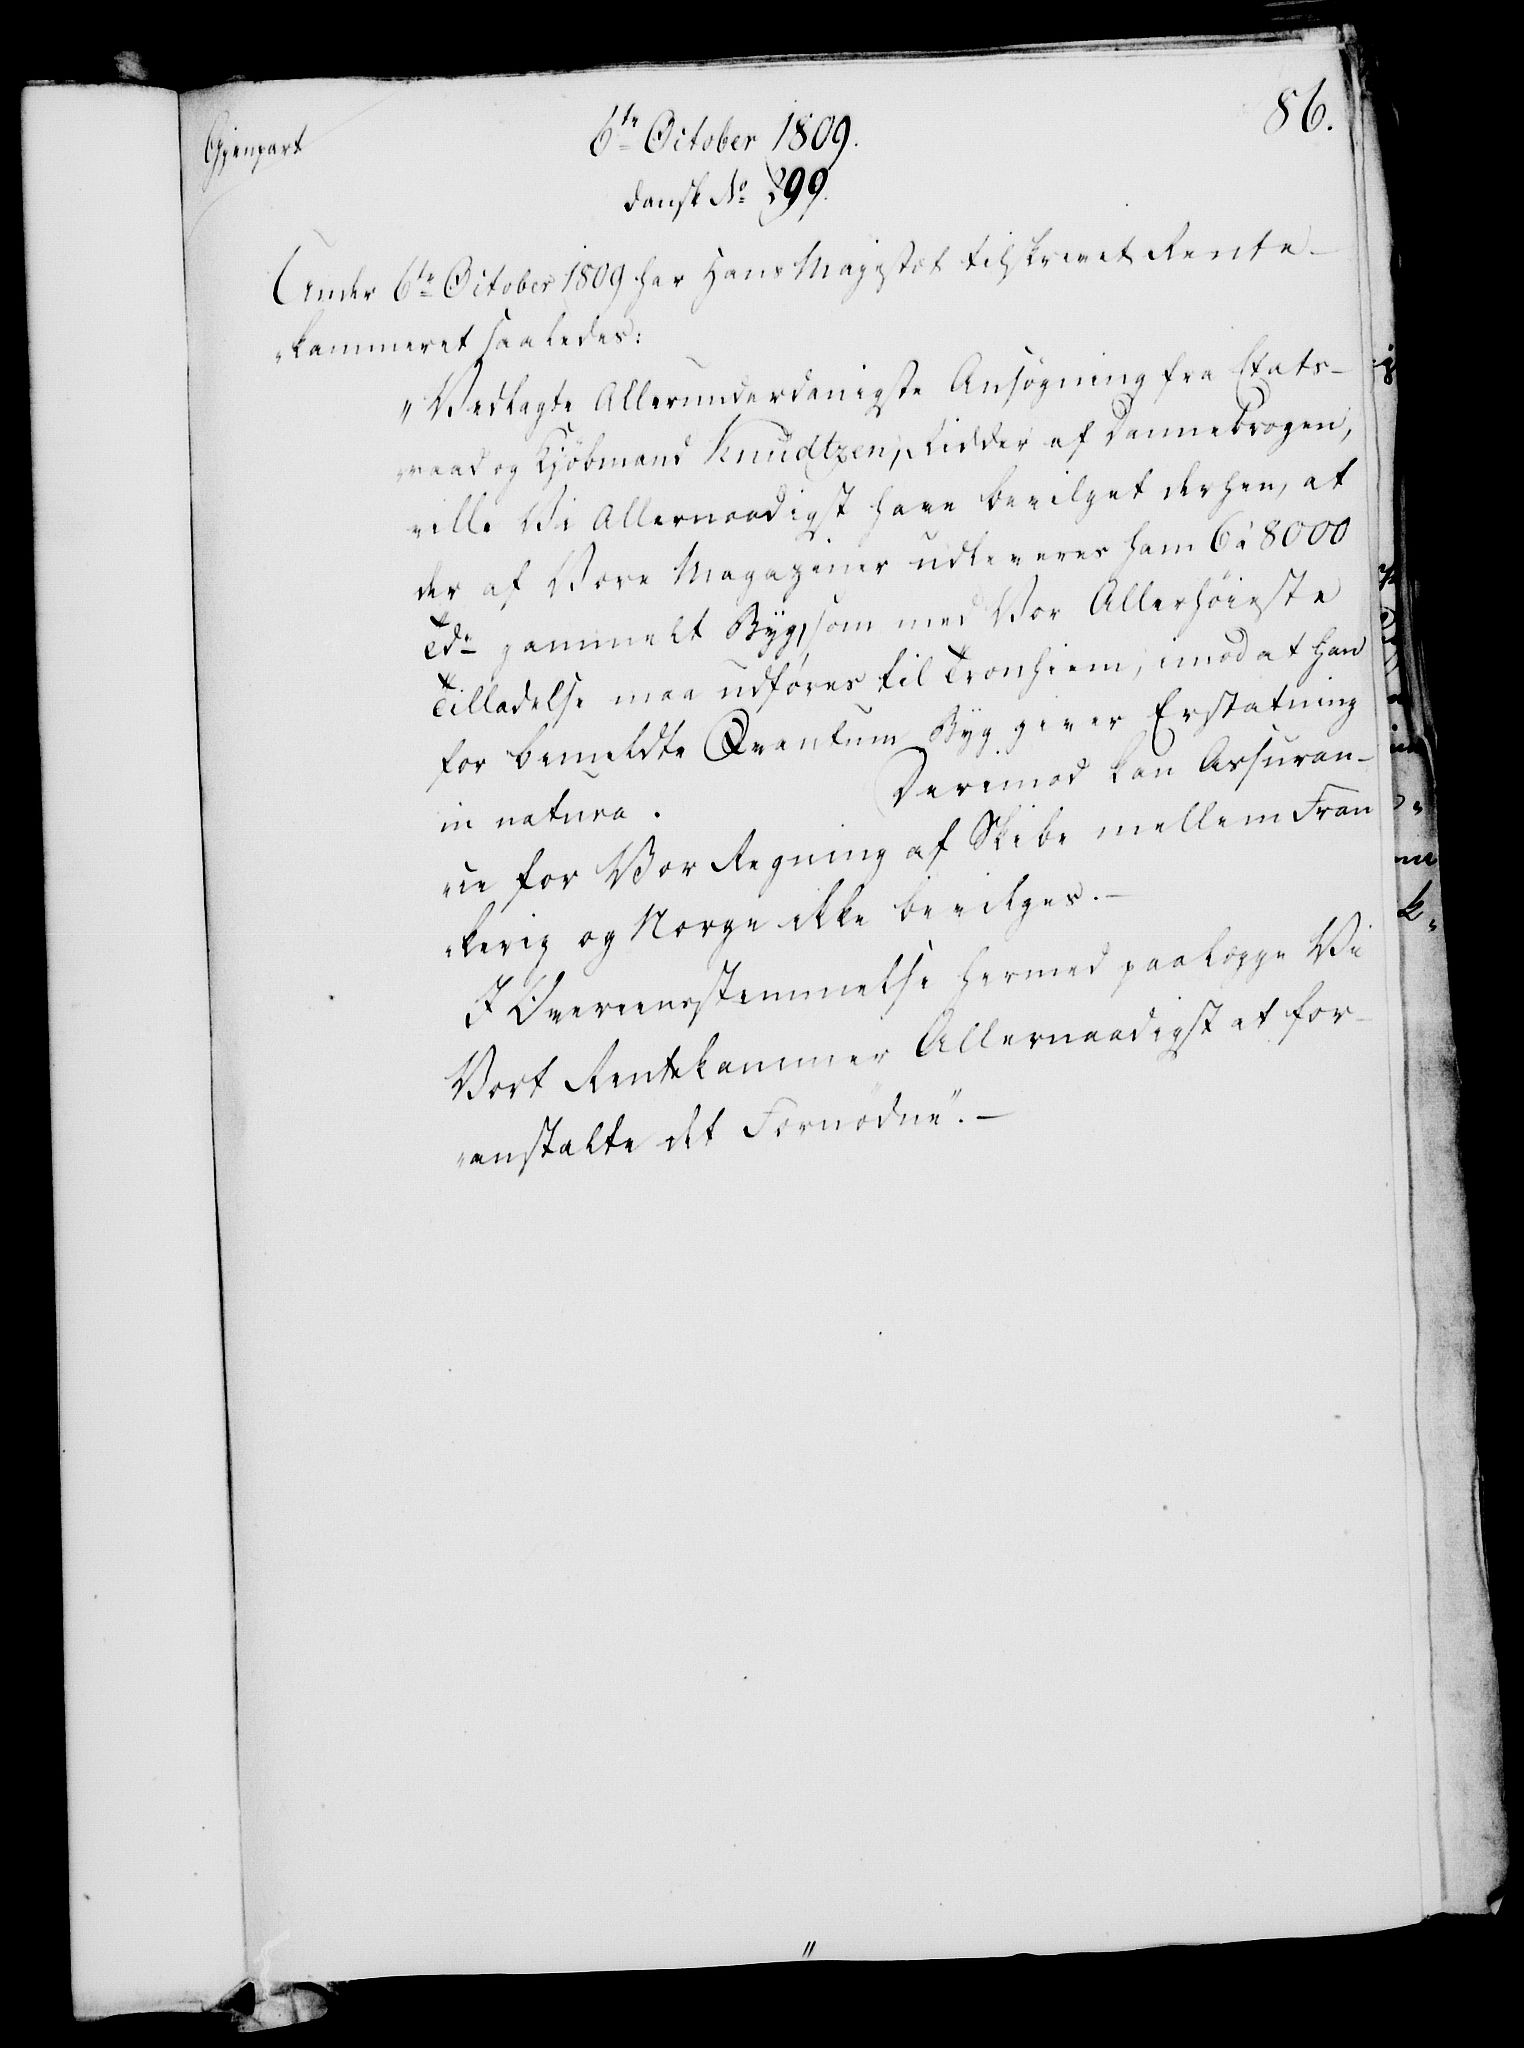 Gjenpart
6te October 1809.
86.
dansk No 299.
Under 6te October 1809 har Hans Majestæt tilskrevet Rente-
„kammeret saaledes:
„Vedlagte Allerunderdanigste Ansøgning fra Etats-
„raad og Kjöbmand Knudtzen, Ridder af Dannebrogen,
ville Vi Allernaadigst have bevilget derhen, at
der af Vore Magaziner udleveres ham 6 à 8000
Tdr gammelt Byg, som med Vor Allerhöieste
Tilladelse maa udföres til Tronhiem, imod at han
for bemeldte Qvantum Byg giver Erstatning
in natura. Derimod kan Assuran-
„ce for Vor Regning af Skibe mellem Fran
„kerig og Norge ikke bevilges.-
I Overeensstemmelse hermed paalægge Vi
Vort Rentekammer Allernaadigst at for-
„anstalte det Fornødne".-